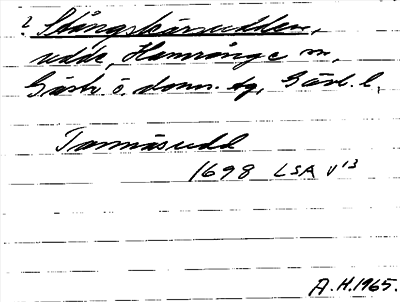 ? Stångskärsudden,
udde, Hamrånge sn,
Gästr. ö. doms. tg, Gävl. l.
Tarnäsudd
1698 LSA V13
A.H. 1965.